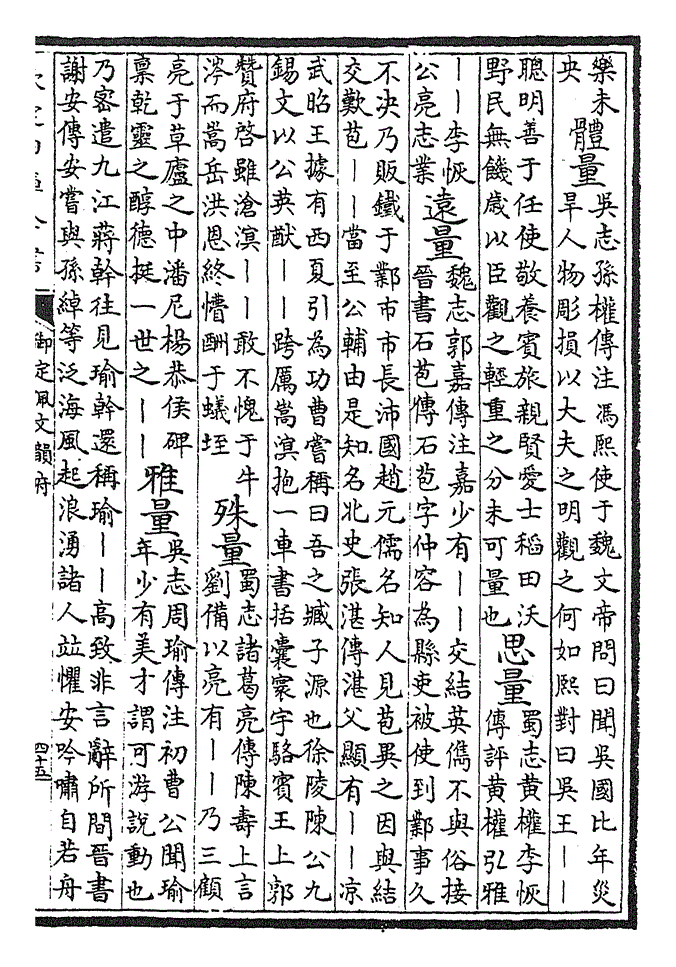 樂未
央
體量
吳志孫權傳注馮熙使于魏文帝問曰聞吳國比年災
旱人物彫損以大夫之明觀之何如熙對曰吳王——
聰明善于任使敬養賓旅親賢愛士稻田沃
野民無饑歲以臣觀之輕重之分未可量也
思量
蜀志黃權李恢
傳評黃權弘雅
——李恢
公亮志業
遠量
魏志郭嘉傳注嘉少有——交結英儁不與俗接
晉書石苞傳石苞字仲容為縣吏被使到鄴事久
不決乃販鐵于鄴市市長沛國趙元儒名知人見苞異之因與結
交歎苞——當至公輔由是知名北史張湛傳湛父顯有——涼
武昭王據有西夏引為功曹嘗稱曰吾之臧子源也徐陵陳公九
錫文以公英猷——跨厲嵩溟抱一車書括囊寰宇駱賓王上郭
贊府啓雖滄溟——敢不愧于牛
涔而嵩岳洪恩終懵酬于蟻垤
殊量
蜀志諸葛亮傳陳壽上言
劉備以亮有——乃三顧
亮于草廬之中潘尼楊恭侯碑
稟乾靈之醇德挺一世之——
雅量
吳志周瑜傳注初曹公聞瑜
年少有美才謂可游說動也
乃密遣九江蔣幹往見瑜幹還稱瑜——高致非言辭所間晉書
謝安傳安嘗與孫綽等泛海風起浪湧諸人竝懼安吟嘯自若舟
欽定四庫全書
御定佩文韻府
四十五